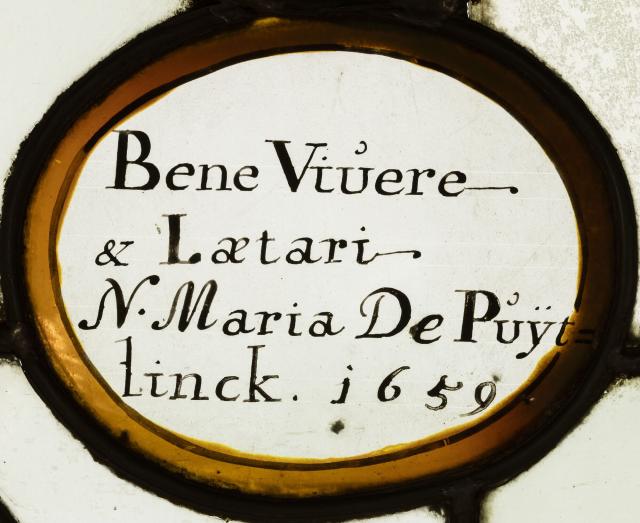 Bene Viůere
& Lætari
N. Maria De Půÿt=
linck. 1659